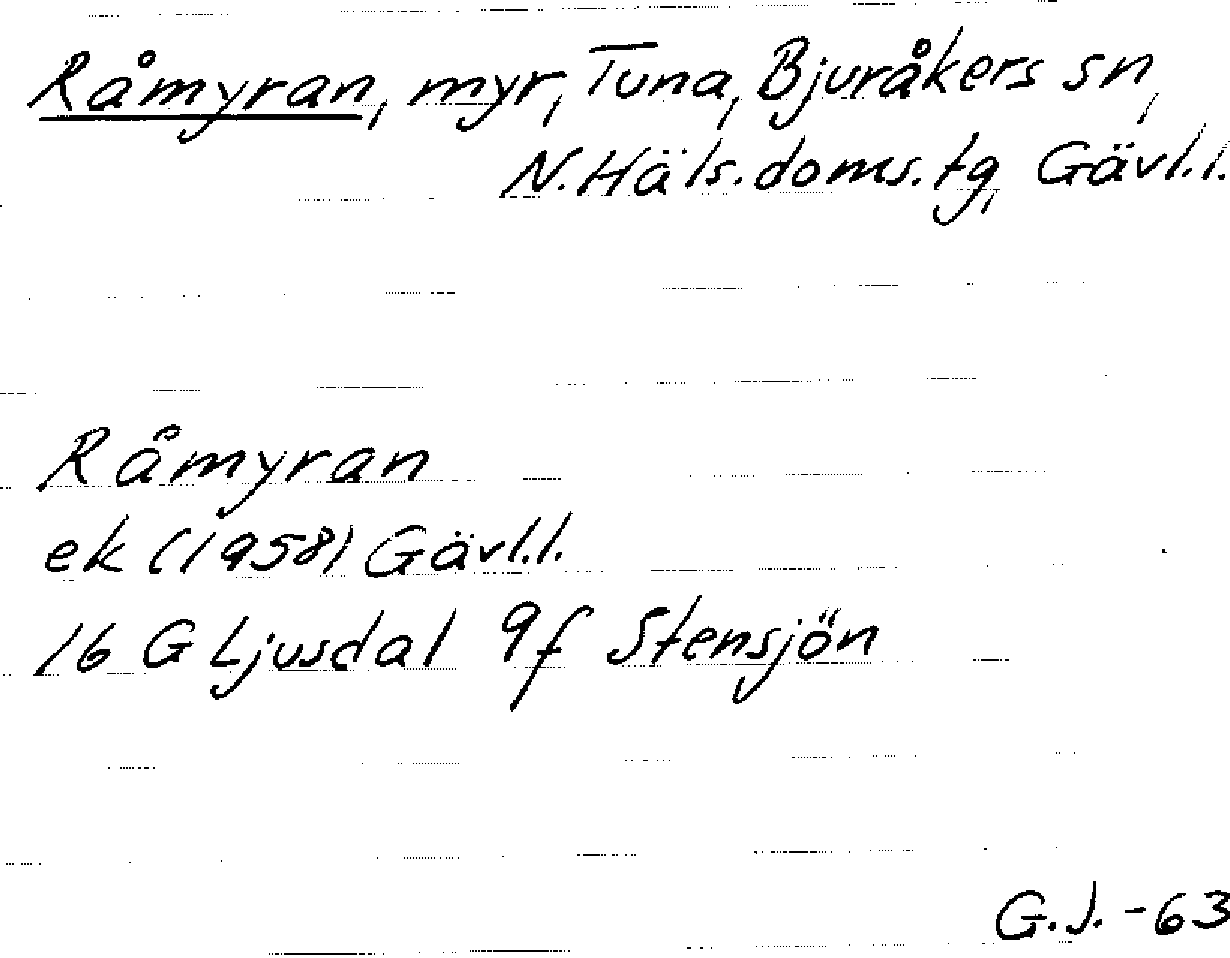 Råmyran, myr, Tuna, Bjuråkers sn,
N. Häls. doms. tg, Gävl.l.
Råmyran
ek (1958) Gävl.l.
16 G Ljusdal 9f Stensjön
G.J. -63